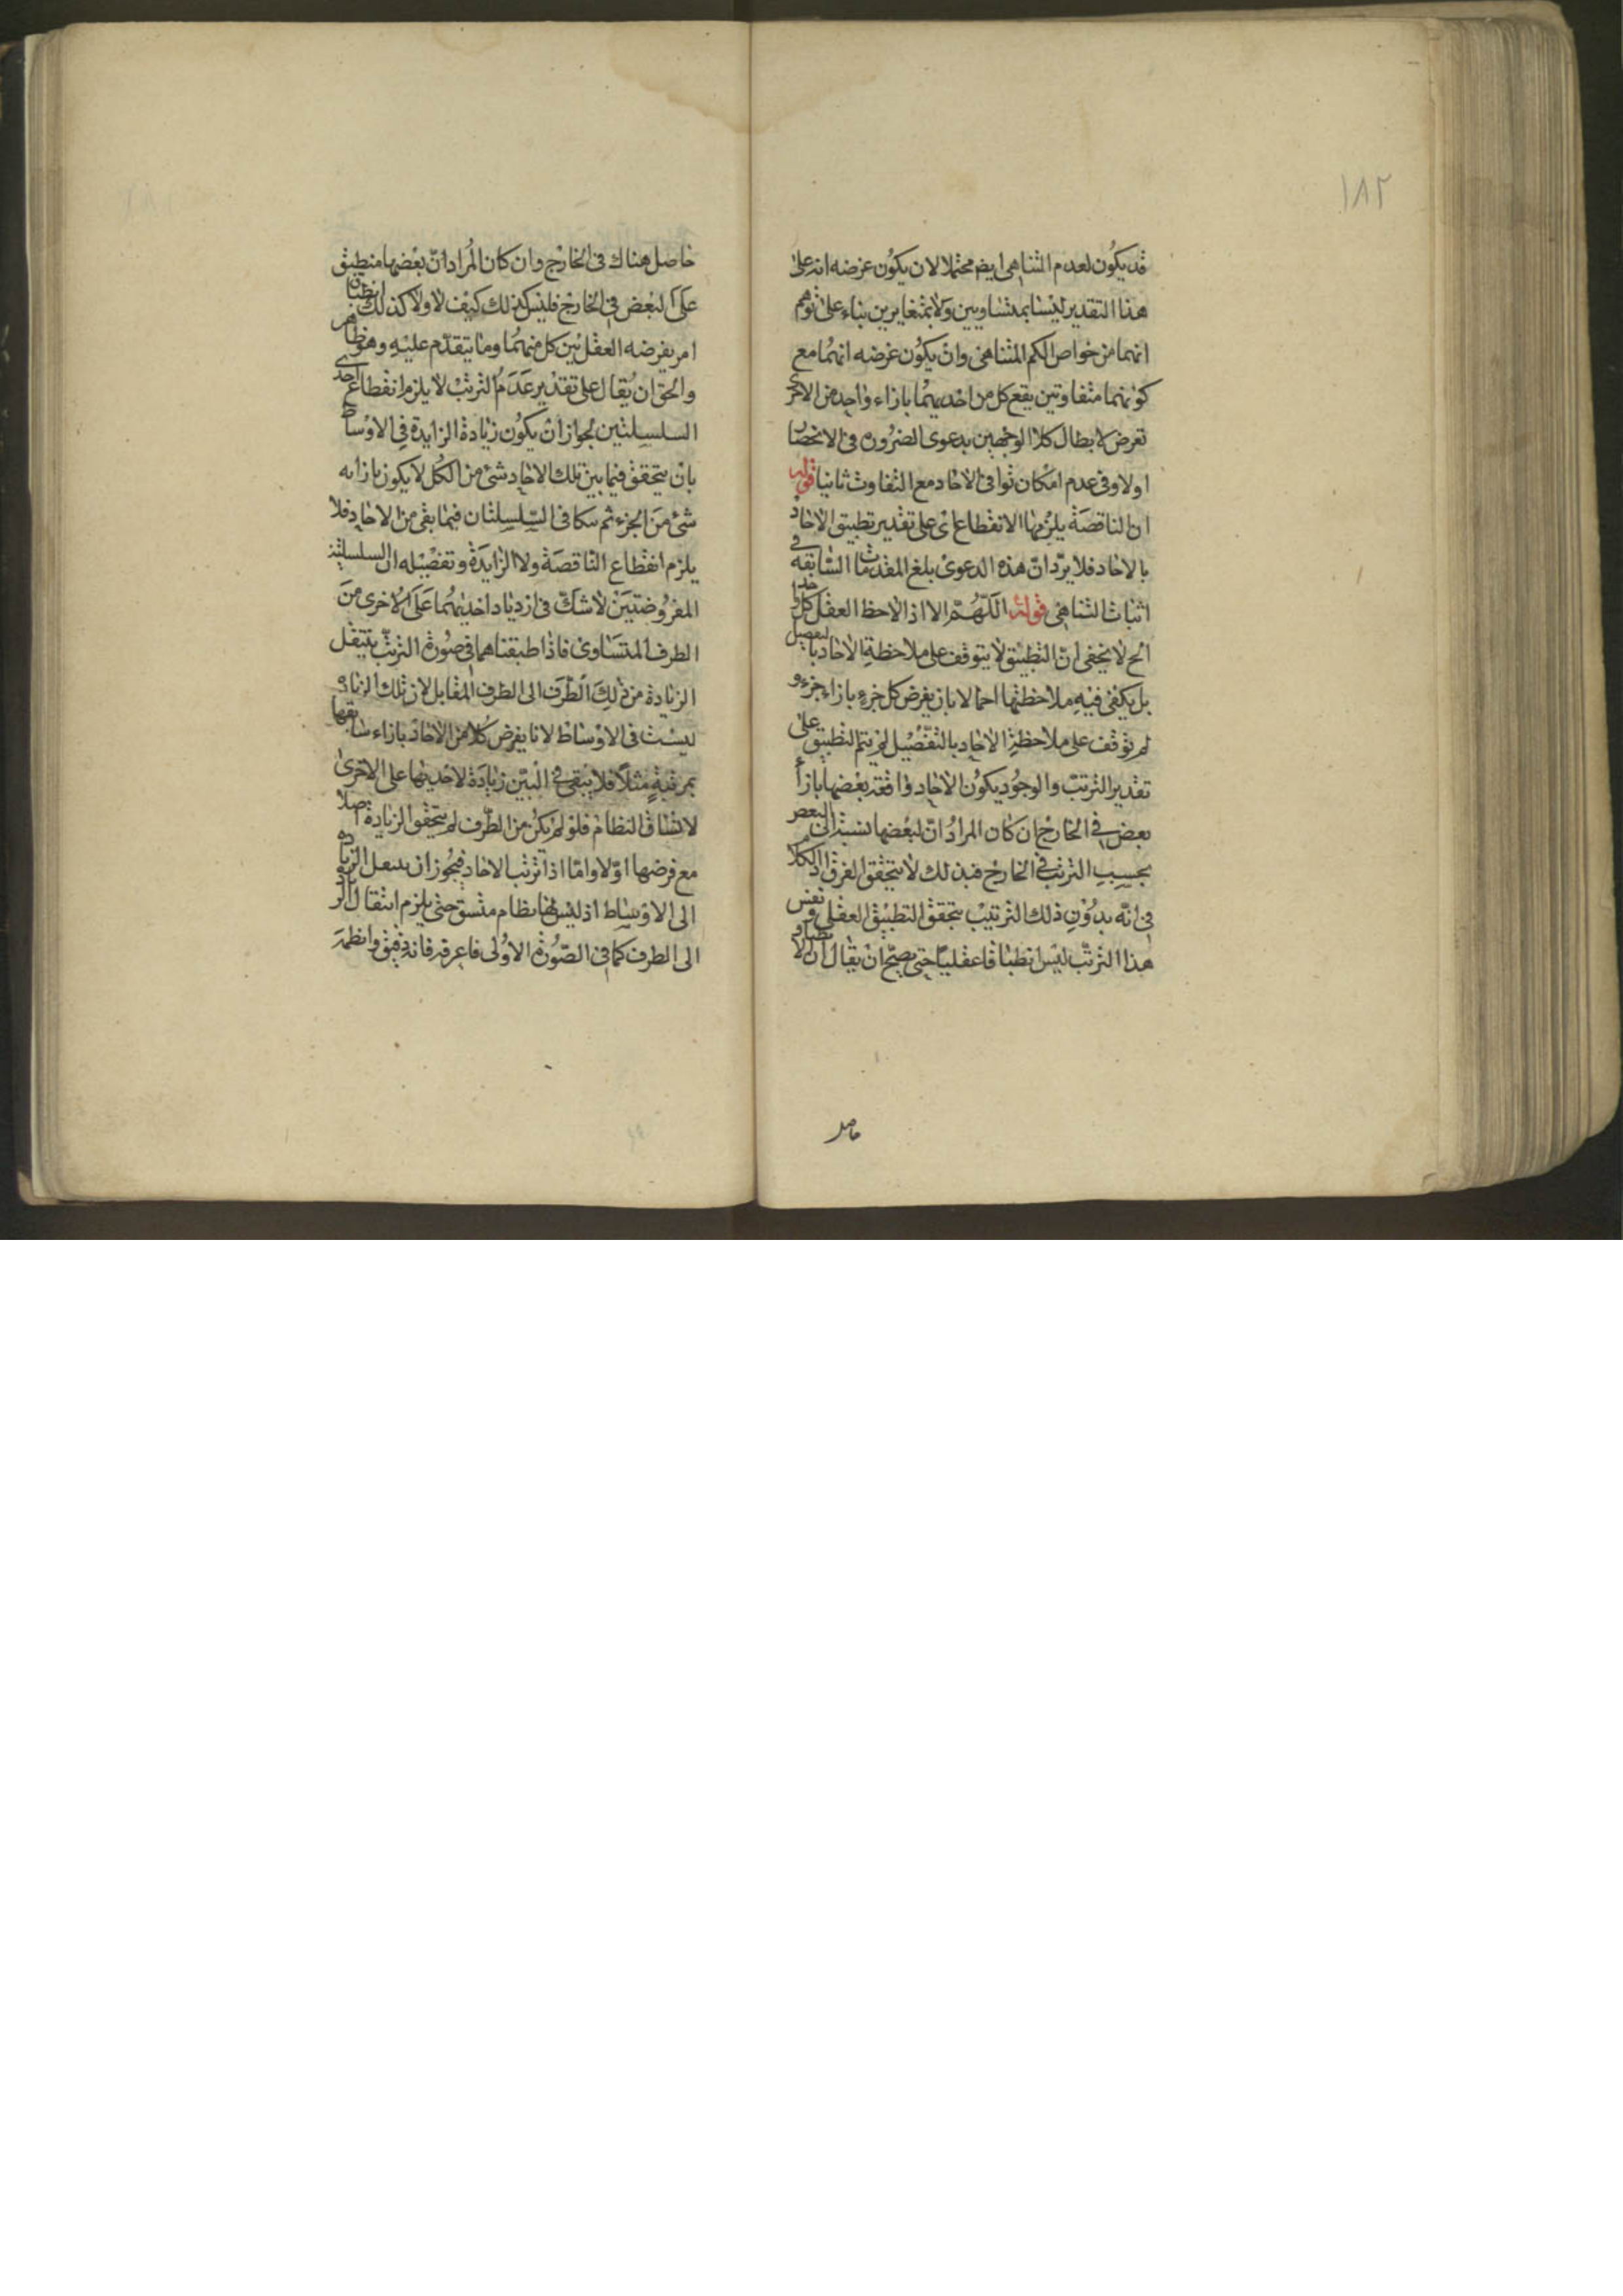 ١٨٢
قد يكون لعدم التناهى ايض محتملا لان يكون غرضه انه على
هذا التقدير ليسا بمتساويين ولا بمتغايرين بناء على توهم
انهما من خواص الكم المتناهى وان يكون غرضه انهما مع
كونهما متفاوتين يقع كل من احديهما بازاء واحد من الاخر
تعرض لابطال كلا الوجهين بدعوى الضرورة فى الانحصار
اولا وفى عدم امكان توافى الاحاد مع التفاوت ثانيا قوله
ان الناقصة يلزمها الانقطاع اى على تقدير تطبيق الاحاد
بالاحاد فلا يرد ان هذه الدعوى بلغ المقدمات السابقة فى
اثبات التناهى قوله اللهم الا اذا لاحظ العقل كل واحد
الخ لا يخفى ان التطبيق لا يتوقف على ملاحظة الاحاد بالتفصيل
بل يكفى فيه ملاحظتها اجمالا بان يفرض كل جزء بازاء جزء و
لو توقف على ملاحظة الاحاد بالتفصيل لم يتم التطبيق على
تقدير الترتب والوجود يكون الاحاد واقعة بعضها بازاء
بعض فى الخارج ان كان المراد ان لبعضها نسبة الى البعض
بحسب الترتب فى الخارج فبذلك لا يتحقق الفرق اذ الكلام
فى انه بدون ذلك الترتيب يتحقق التطبيق العقلى و نفس
هذا الترتب ليس انطباقا عقليا حتى يصح ان يقال ان الانطباق
حاصل
حاصل هناك فى الخارج وان كان المراد ان بعضها منطبق
على البعض فى الخارج فليس كذلك كيف لا ولا كذلك انطباق
امر يفرضه العقل بين كل منهما وما يتقدم عليه وهو ظاهر
والحق ان يقال على تقدير عدم الترتب لا يلزم انقطاع احدى
السلسلتين لجواز ان يكون زيادة الزايدة فى الاوساط
بان يتحقق فيما بين تلك الاحاد شئ من الكل لا يكون بازايه
شئ من الجزء ثم يتكافى السلسلتان فيما بقى من الاحاد فلا
يلزم انقطاع الناقصة ولا الزايدة وتفصيله ان السلسلتين
المفروضتين لا شك فى ازدياد احديهما على الاخرى من
الطرف المتساوى فاذا طبقناهما فى صورة الترتب ينتقل
الزيادة من ذلك الطرف الى الطرف المقابل لان تلك الزيادة
ليست فى الاوساط لانا يفرض كلا من الاحاد بازاء سابقها
بمرتبة مثلا فلا يبقى فى البين زيادة لاحديها على الاخرى
لاتساق النظام فلو لم يكن من الطرف لم يتحقق الزيادة اصلا
مع فرضها اولا واما اذا ترتب الاحاد فيجوز ان ينتقل الزيادة
الى الاوساط اذ ليس لها نظام متسق حتى يلزم انتقال الزيادة
الى الطرف كما فى الصورة الاولى فاعرفه فانه دقيق وانظمه